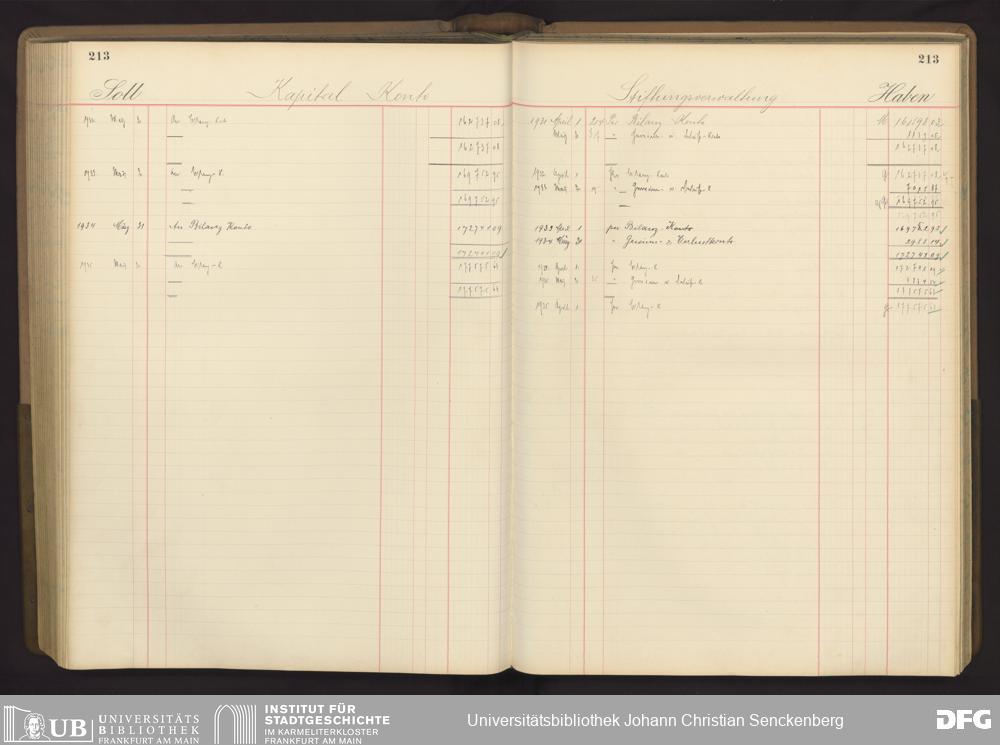 213
Soll Kapital Konto
1932 März 31 An Bilanz-Konto 162737 08
162737 08
1933 März 31 An Bilanz-K. 169752 95
169752 95
1934 März 31 An Bilanz Konto 172741 09
172741 09
1935 März 31 An Bilanz-K
213
Stiftungsverwaltung Haben
1931 April 1 Per Bilanz Konto
März 31 " Gewinn- u. Verlust-Konto
162737 08
1932 April 1 Per Bilanz Konto 162737 08
1933 März 31 " Gewinn- u. Verlust-K 7015 87
169752 95
1933 April 1 per Bilanz-Konto 169752 95
1934 März 31 " Gewinn- u. Verlustkonto 2988 14
172741 09
1934 April 1 Per Bilanz-K 172741 09
1935 März 31 " Gewinn u. Verlust-K
1935 April 1 Per Bilanz-K
UB UNIVERSITÄTS
BIBLIOTHEK
FRANKFURT AM MAIN
INSTITUT FÜR
STADTGESCHICHTE
IM KARMELITERKLOSTER
FRANKFURT AM MAIN
Universitätsbibliothek Johann Christian Senckenberg
DFG